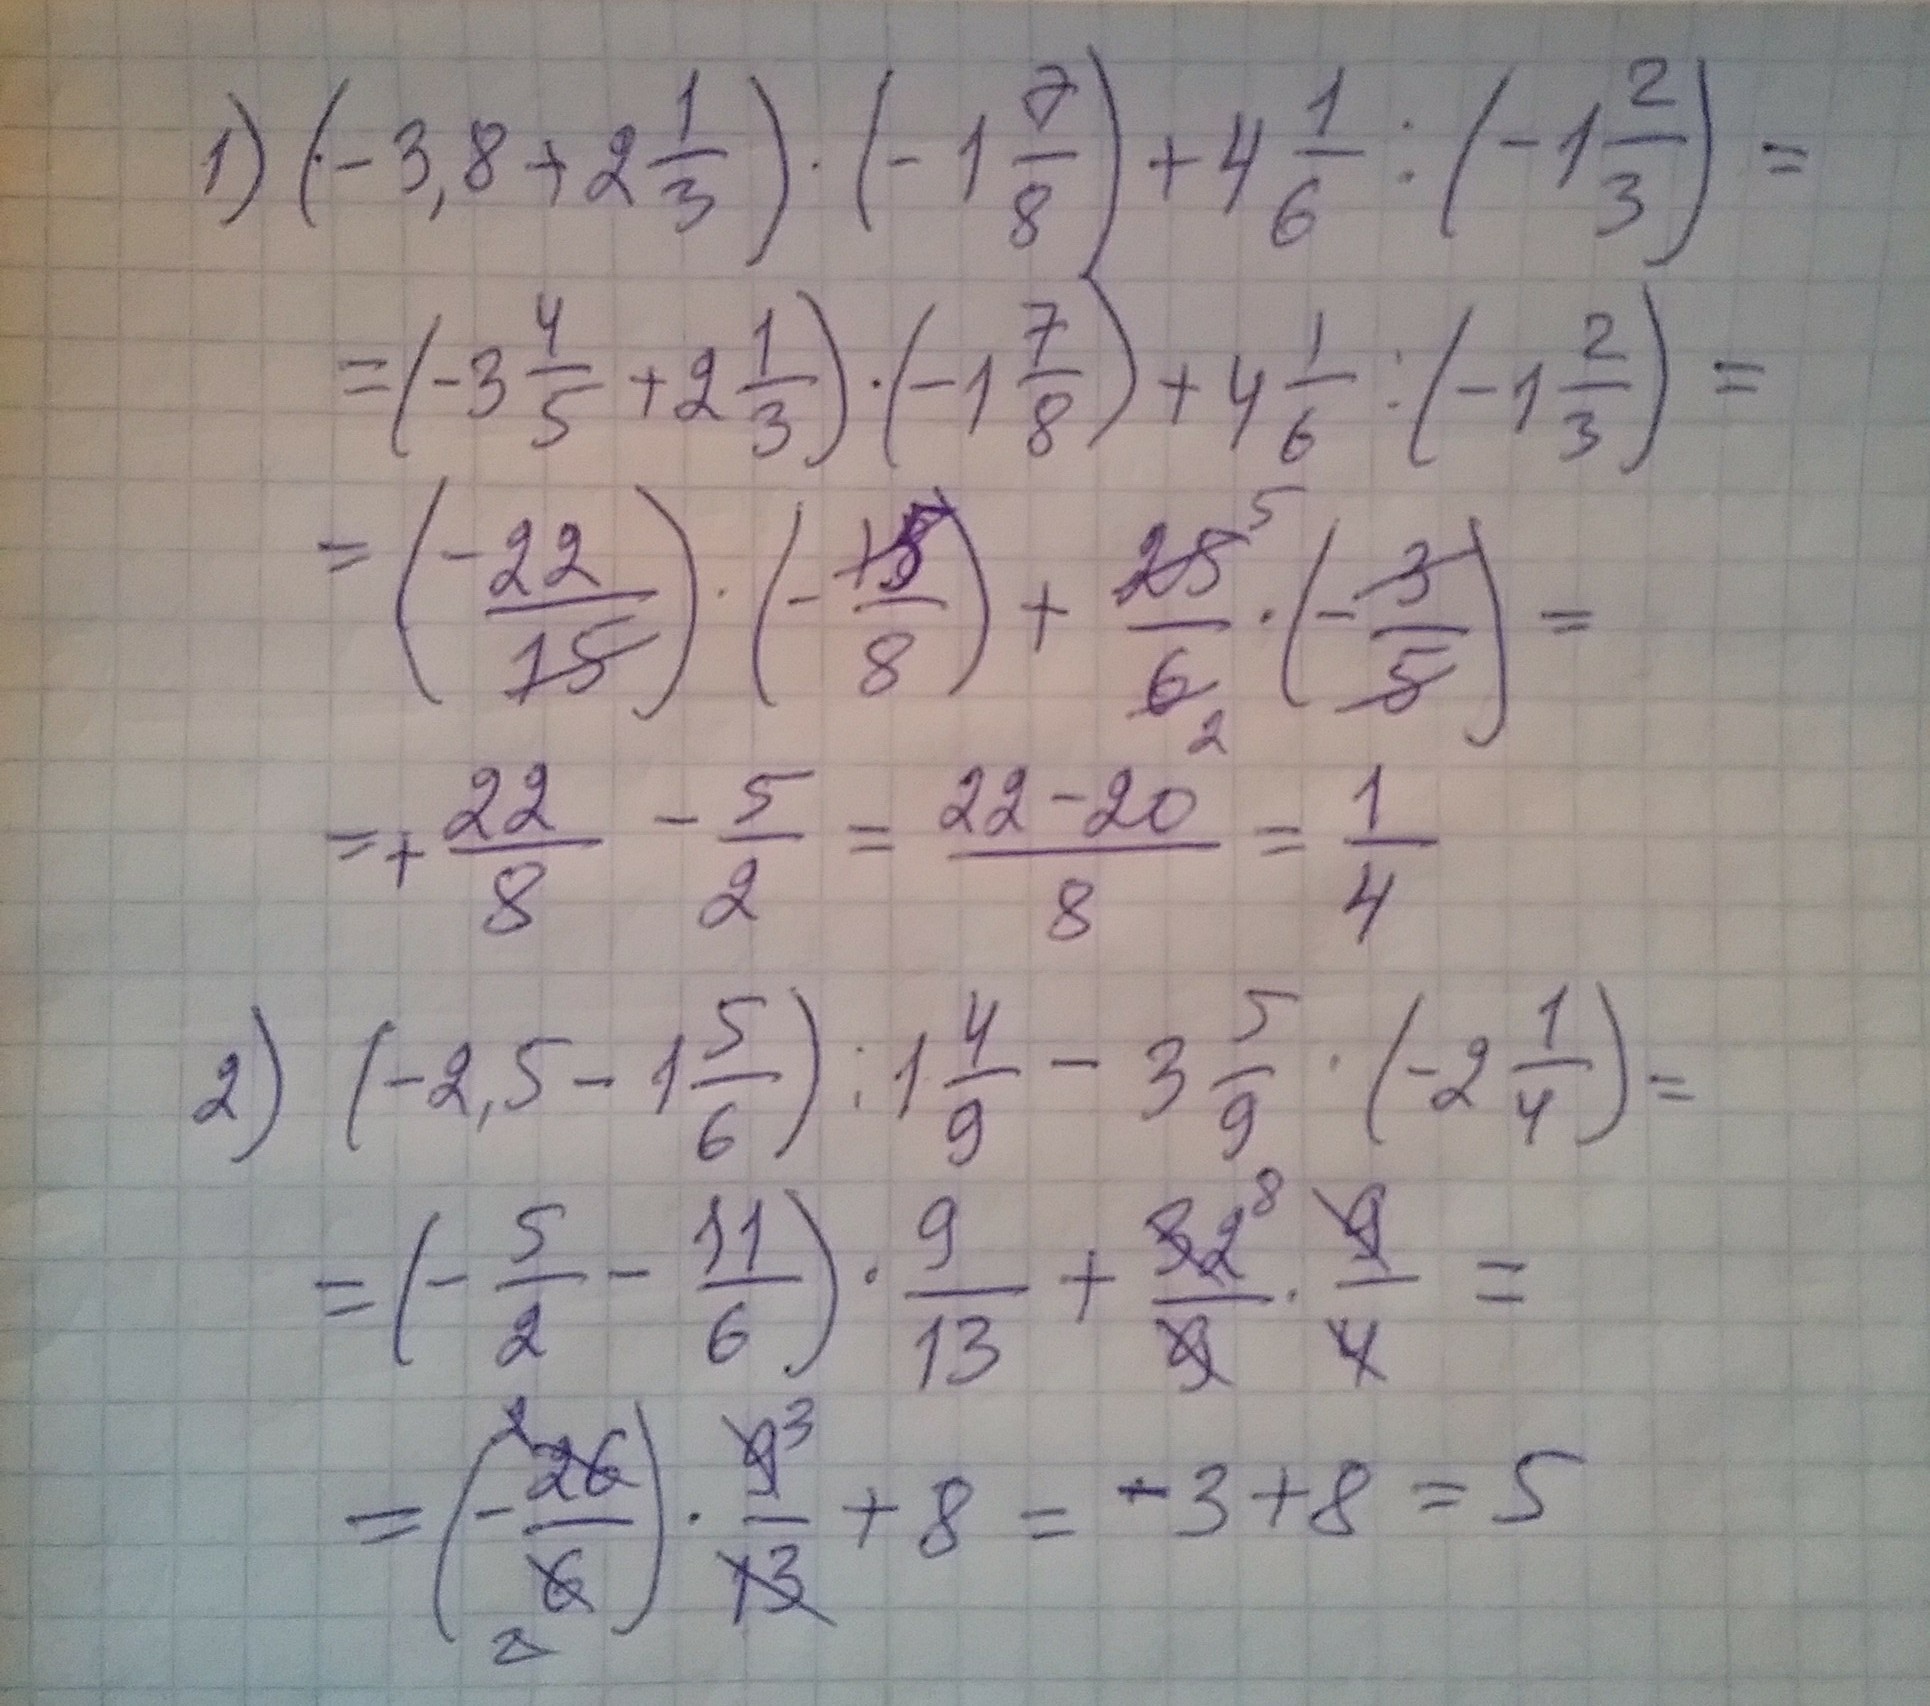 1) (-3,8 + 2 1/3) · (-1 7/8) + 4 1/6 : (-1 2/3) =
= (-3 4/5 + 2 1/3) · (-1 7/8) + 4 1/6 : (-1 2/3) =
= (-22/15) · (-15/8) + 25/6 5 2 · (-3/5) =
= + 22/8 - 5/2 = 22-20/8 = 1/4
2) (-2,5 - 1 5/6) : 1 4/9 - 3 5/9 · (-2 1/4) =
= (-5/2 - 11/6) · 9/13 + 32/9 8 · 9/4 =
= (-26/6 2 2) · 9/13 3 + 8 = -3+8 = 5